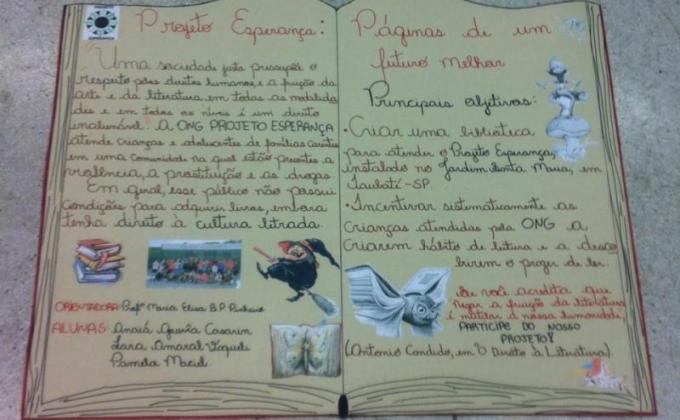 Projeto Esperança:
Uma sociedade justa pressupõe o
respeito pelos direitos humanos, e a fruição da
arte e da literatura em todas as modalida
des e em todos os níveis é um direito
inalienável. A ONG PROJETO ESPERANÇA
atende crianças e adolescentes de famílias carentes
em uma comunidade na qual estão presentes a
violência, a prostituição e as drogas.
Em geral, esse público não possui
condições para adquirir livros, embora
tenha direito à cultura letrada
ORIENTADORA: Profª Maria Elisa B.P. Pinheiro
ALUNAS: Casarin
Lara Amaral
Pamela Maciel
Páginas de um
futuro melhor
Principais objetivos:
• Criar uma biblioteca
para atender o Projeto Esperança,
instalado no Jardim Santa Maria, em
Taubaté-SP.
• Incentivar sistematicamente as
crianças atendidas pela ONG a
criarem hábito de leitura e a desco
brirem o prazer de ler.
Se você acredita que
negar a fruição da literatura
é mutilar a nossa humanidade,
PARTICIPE DO NOSSO
PROJETO!
(Antonio Candido, em O Direito à Literatura).